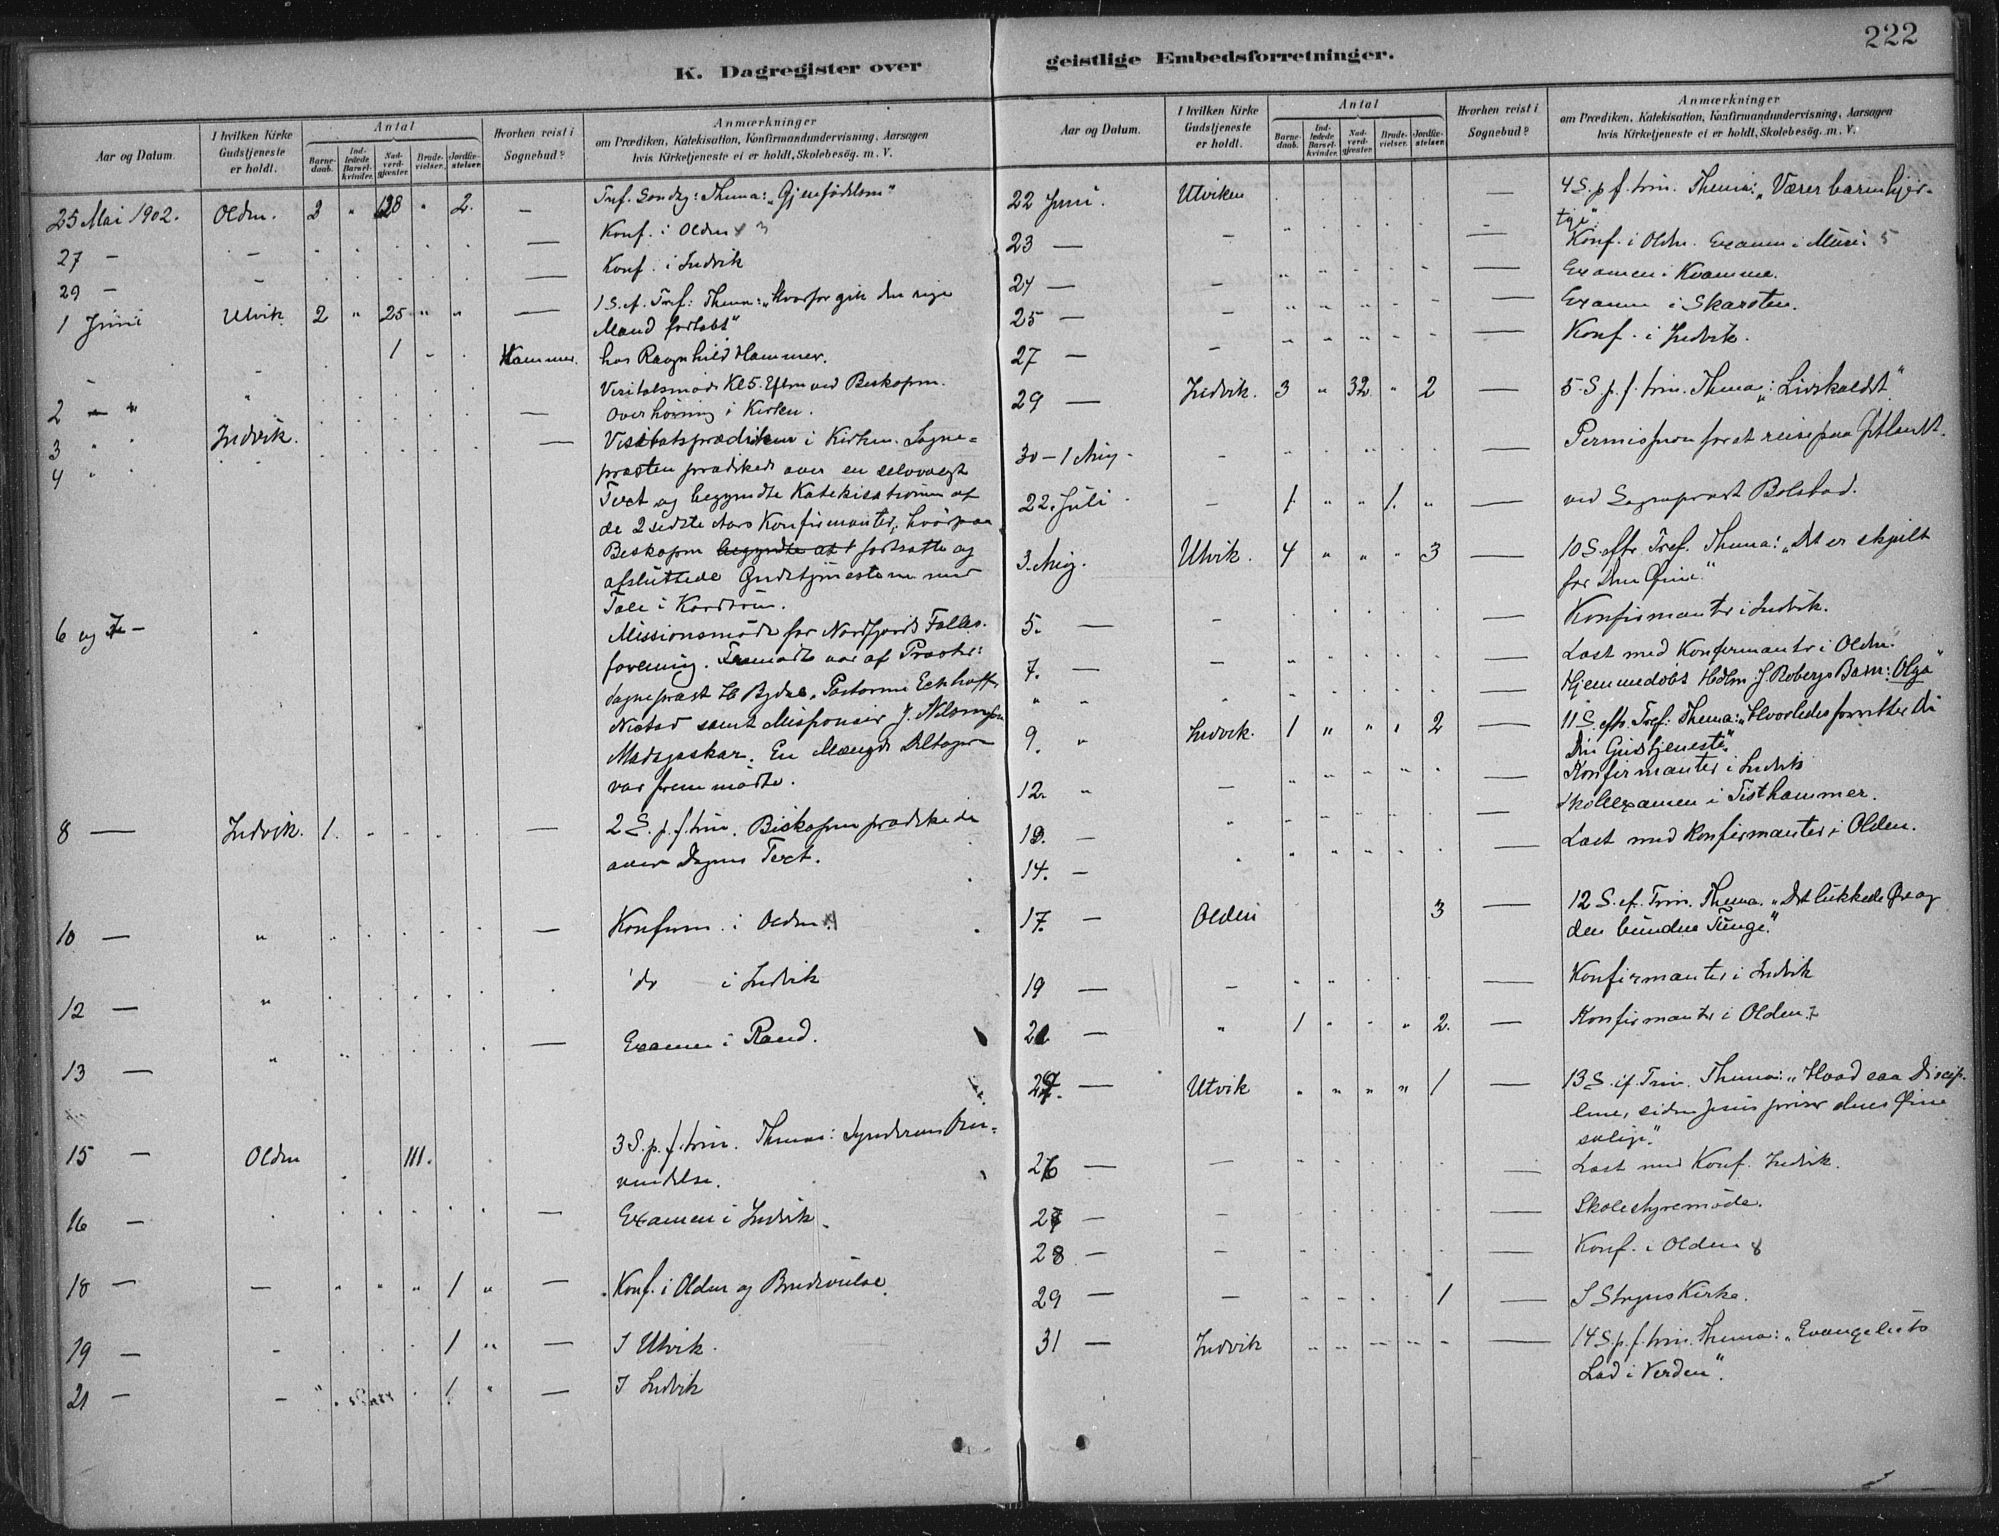 222
K. Dagregister over geistlige Embedsforretninger.
Aar og Datum.
I hvilken Kirke Gudstjeneste er holdt.
Antal
Barne-daab.
Ind-ledede Barsel-kvinder.
Nad-verd-gjæster.
Brude-vielser.
Jordfæ-stelser.
Hvorhen reist i Sognebud?
Anmærkninger
om Prædiken, Katekisation, Konfirmandundervisning, Aarsagen
hvis Kirketjeneste ei er holdt, Skolebesøg. m. V.
25 Mai 1902. Olden. 128 " 2. — Tref. Sondg: Thema: „Gjenfødelsen"
27 — — Konf. i Olden
29 — — Konf. i Indvik
1 Juni Utvik 2 " 25 " " — 1 S. ef. Tref: Thema: „Hvorfor gik den rige
Mand fortabt"
1 Hammer. hos Ragnhild Hammer.
2 — " Visitatsmøde Kl 5. Eftm ved Biskopen.
3 " Indvik. — Overhøring i Kirken.
4 " Visitatsprædiken i Kirken. Sogne-
præsten prædikede over en selvvalgt
Text og begyndte Katekisationen af
de 2 sidste Aars Konfirmanter, hvorpaa
Biskopen begyndte at fortsatte og
afsluttede Gudstjenesten med
Tale i Kordøren.
6 og 7 — Missionsmøde for Nordfjords Fælles-
forening. Fremmødte var af Præster:
Sognepræst
samt Missionær J. Nilsen fra
Madagaskar. En Mængde Deltagere
var fremmødte.
8 — Indvik. 1. — 2 S. p. f. trin. Biskopen prædikede
over Dagens Text.
10 — " — Konfirm. i Olden
12 — " do i Indvik
13 — " — Examen i Rand.
15 — Olden 111. 3 S. p. f. trin. Thema: Synderens Om-
vendelse.
16 — — Examen i Indvik.
18 — — " " " 1 " — Konf. i Olden og Brudevielse.
19 — 1 " — I Utvik.
21 — — 1 " — I Indvik
Aar og Datum.
I hvilken Kirke Gudstjeneste er holdt.
Antal
Barne-daab.
Ind-ledede Barsel-kvinder.
Nad-verd-gjæster.
Brude-vielser.
Jordfæ-stelser.
Hvorhen reist i Sognebud?
Anmærkninger
om Prædiken, Katekisation, Konfirmandundervisning, Aarsagen
hvis Kirketjeneste ei er holdt, Skolebesøg. m. V.
22 Juni. Utviken — 4 S. p. f. trin. Thema: „Værer barmhjer-
tige"
23 — — — Konf. i Olden. Examen i Muri 5
24 — — Examen i Kvamme.
25 — — — Examen i Skarsten.
27 — — — Konf. i Indvik.
29 — Indvik. 3 " 32. " 2 — 5. S. p. f. trin. Thema: „Livskaldet"
30 — 1 Aug. — — Permission for at reise paa
22. Juli — 1. " " 1. " — ved Sogneprest Bolstad.
3. Aug. Utvik. 4 " " " 3 — 10 S. eftr. Tref. Thema: „Det er skjult
for Dine Øine."
5. — — — Konfirmanter i Indvik.
7. — — — Læst med Konfirmanter i Olden.
" " — Hjemmedøbt Barn: Olga
9. " Indvik. 1 " " " 2 — 11 S. eftr. Tref: Thema: „Hvorledes forretter Du
Din Gudstjeneste"
12. " — — Konfirmanter i Indvik
13. — " Skoleexamen i Tisthammer.
14. — — Læst med Konfirmanter i Olden.
17. — Olden 3 — 12 S. ef. Trin. Thema. „Det lukkede Øre og
den bundne Tunge."
19 — — — Konfirmanter i Indvik
— " 1 " " " 2. — Konfirmanter i Olden. 7
— Utvik " " " " 1 — 13 S. ef. Trin. Thema: „Hvad saa
siden Jesus priser deres Øine
salige."
26 — — — Læst med Konf. Indvik.
27 — — — Skolestyremøde.
28 — — — Konf. i Olden 8
29 — — 1 — I Stryns Kirke.
31 — Indvik — 14 S. p. f. trin. Thema: „Evangeliets
Lød i Verden".